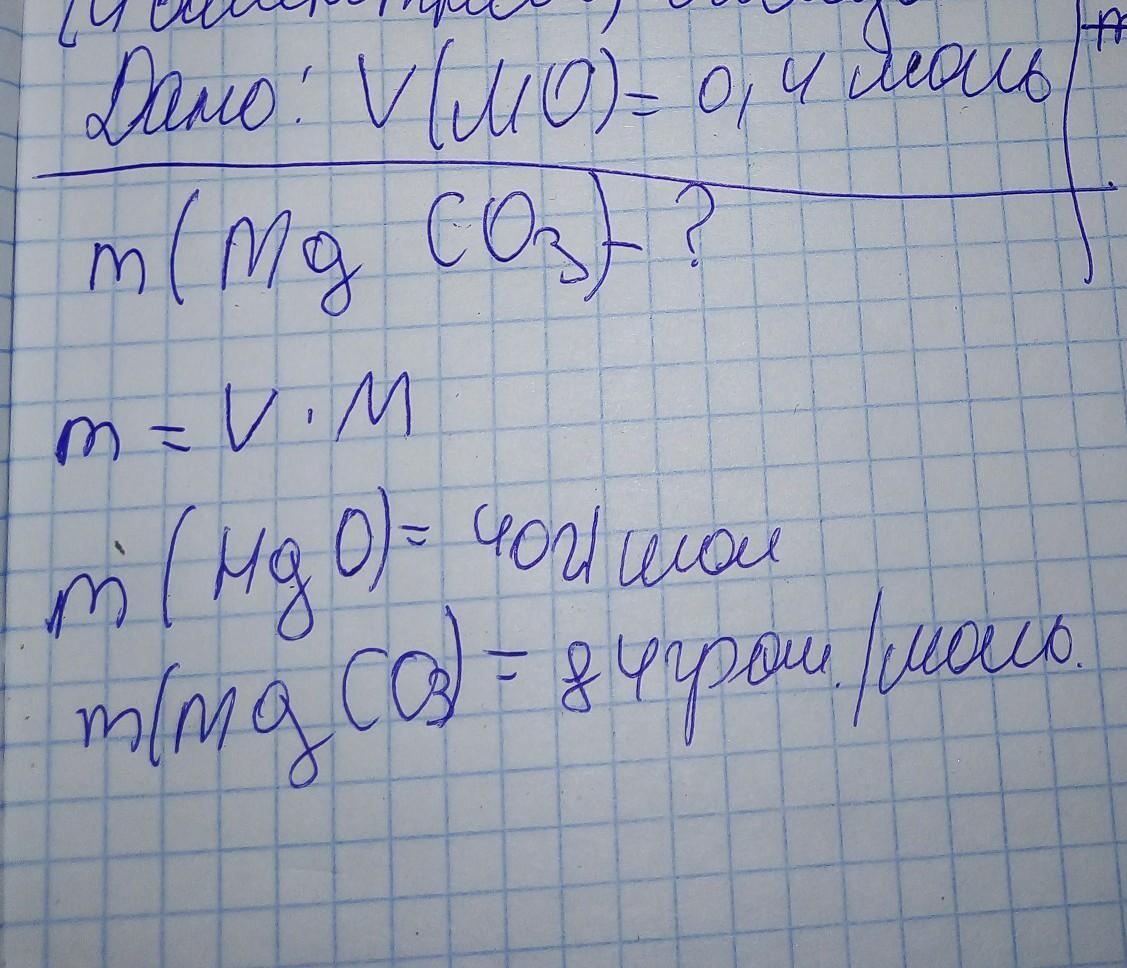 Дано: V(MO)= 0,4 моль
m(Mg CO3)-?
m = V · M
m(MgO)= 40г/мол
m(Mg CO3) = 84 гром./моль.